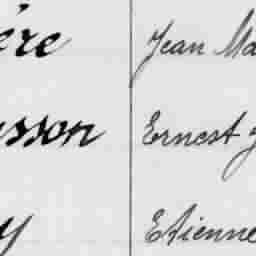 ère Jean Ma
sson Ernest J
y Etienne